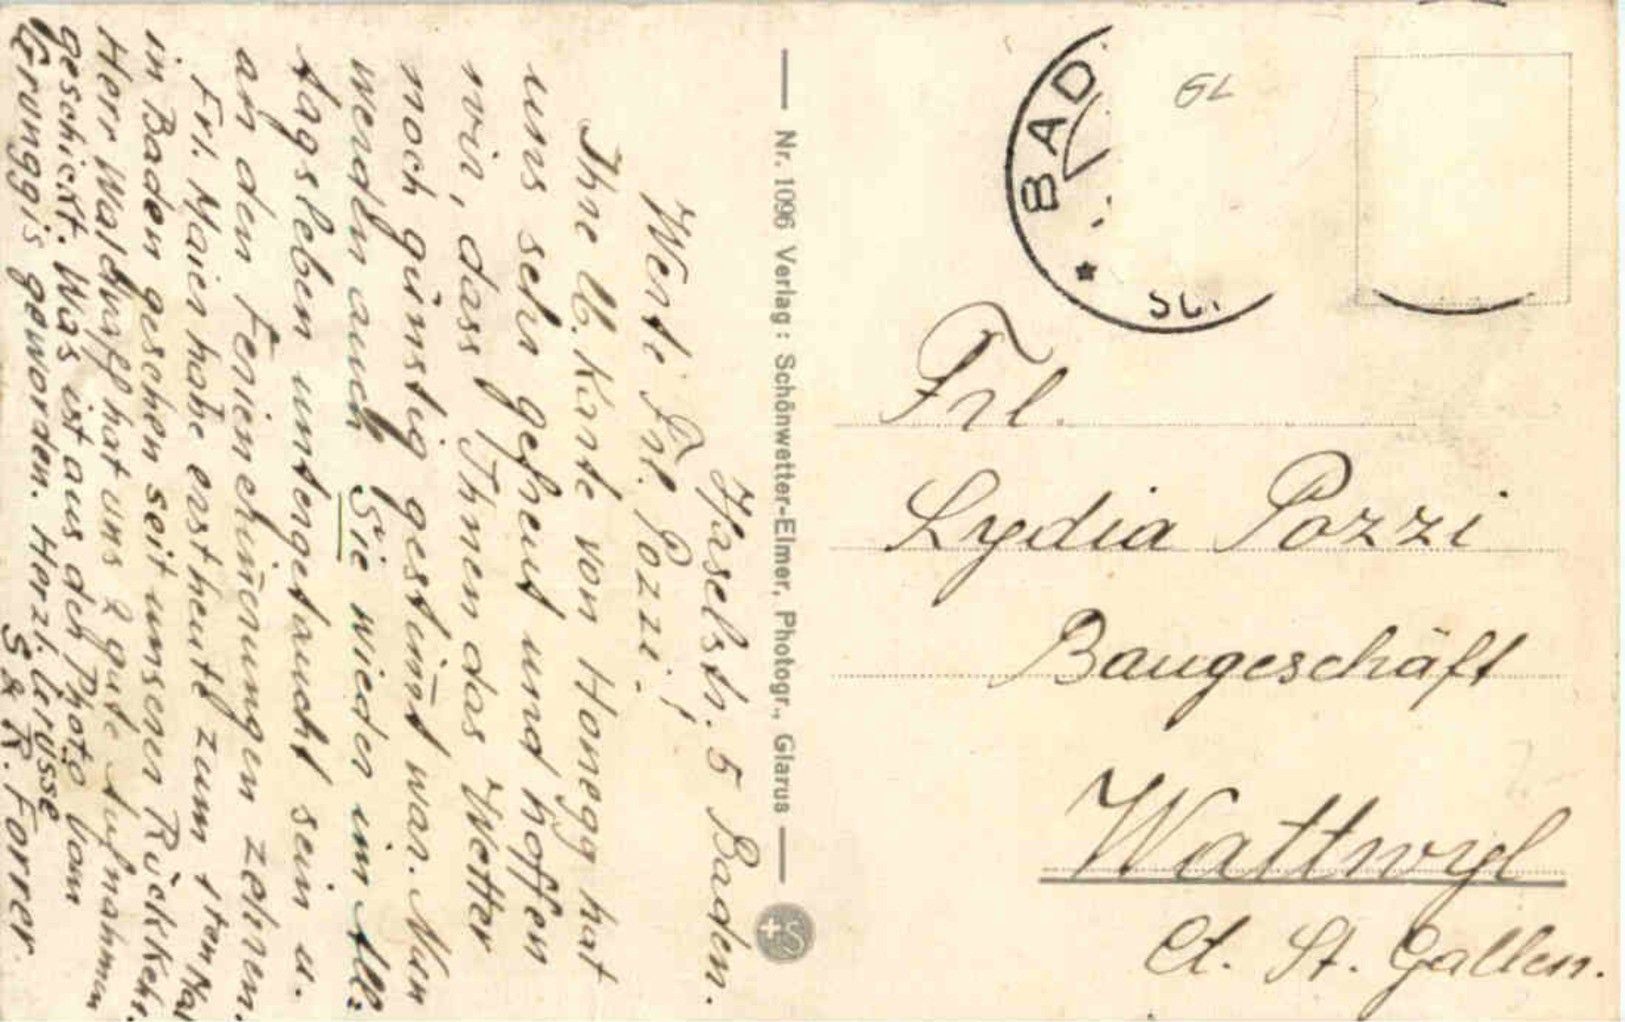 Haselstr. 5 Baden.
Werte Frl. Pozzi!
Ihre lb. Karte von Honegg hat
uns sehr gefreut und hoffen
wir, dass Ihnen das Wetter
noch günstig gestim̄t war. Nun
werden auch Sie wieder im All-
tagsleben untergetaucht sein u.
an den Ferienerin̄erungen zehren.
Frl. Maier habe erst heute zum 1ten Mal
in Baden gesehen seit unserer Rückkehr.
Herr hat uns 2 gute Aufnahmen
geschickt. Was ist aus der Photo vom
geworden. Herzl. Grüsse
S & R. Forrer.
Nr. 1096 Verlag: Schönwetter-Elmer, Photogr., Glarus
S
BAD
SC.
GL
Frl.
Lydia Pozzi
Baugeschäft
Wattwyl
Ct. St. Gallen.